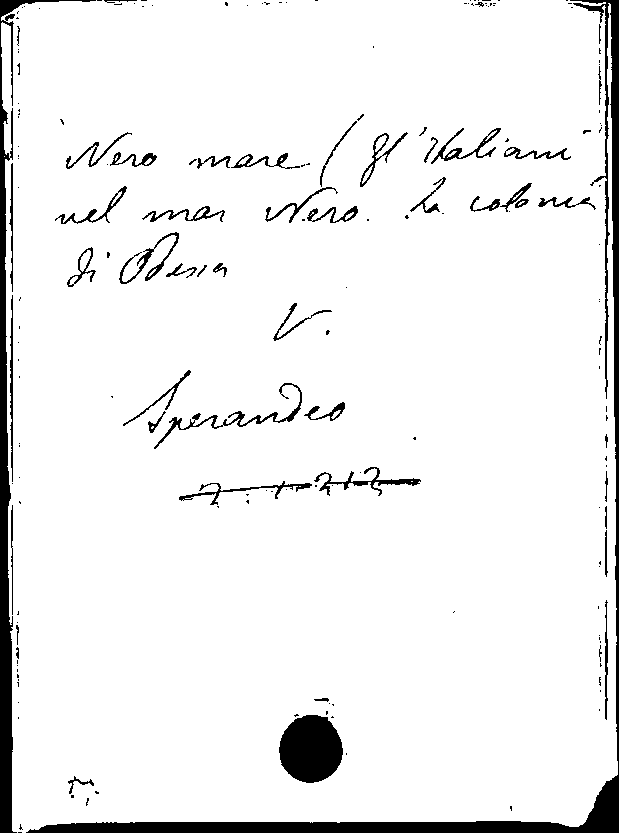 Nero mare (Gl'Italiani
nel mar Nero. La colonia
di Odessa
V.
Sperandeo